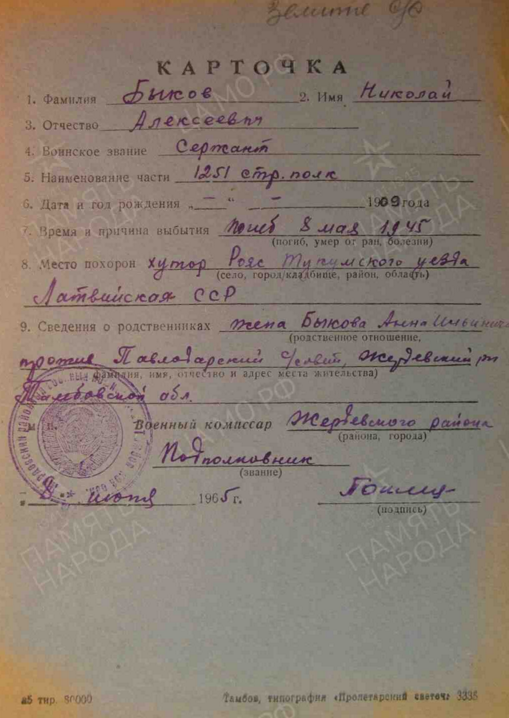 КАРТОЧКА
1. Фамилия Быков 2. Имя Николай
3. Отчество Алексеевич
4. Воинское звание Сержант
5. Наименование части 1251 стр. полк
6. Дата и год рождения „ — “ — 1909 года
7. Время и причина выбытия погиб 8 мая 1945
(погиб, умер от ран, болезни)
8. Место похорон хутор Рояс Тукумского уезда
(село, город, кладбище, район, область)
Латвийская ССР
9. Сведения о родственниках жена Быкова Анна
(родственное отношение,
прожив Павлодарский с/совет, Жердевский
фамилия, имя, отчество и адрес места жительства)
Тамбовской обл.
м. п. Военный комиссар Жердевского района
(района, города)
Подполковник
(звание)
1965 г.
(подпись)
Тамбов, типография «Пролетарский светоч» 3335
ПАМЯТЬ НАРОДА
ЦАМО.РФ